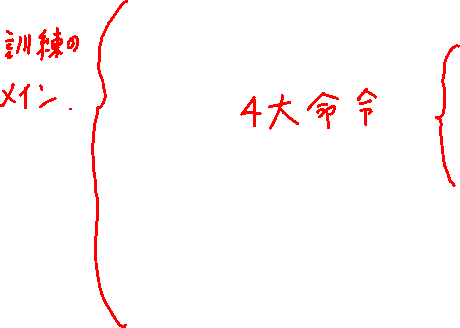 訓練の
メイン.
4大命令